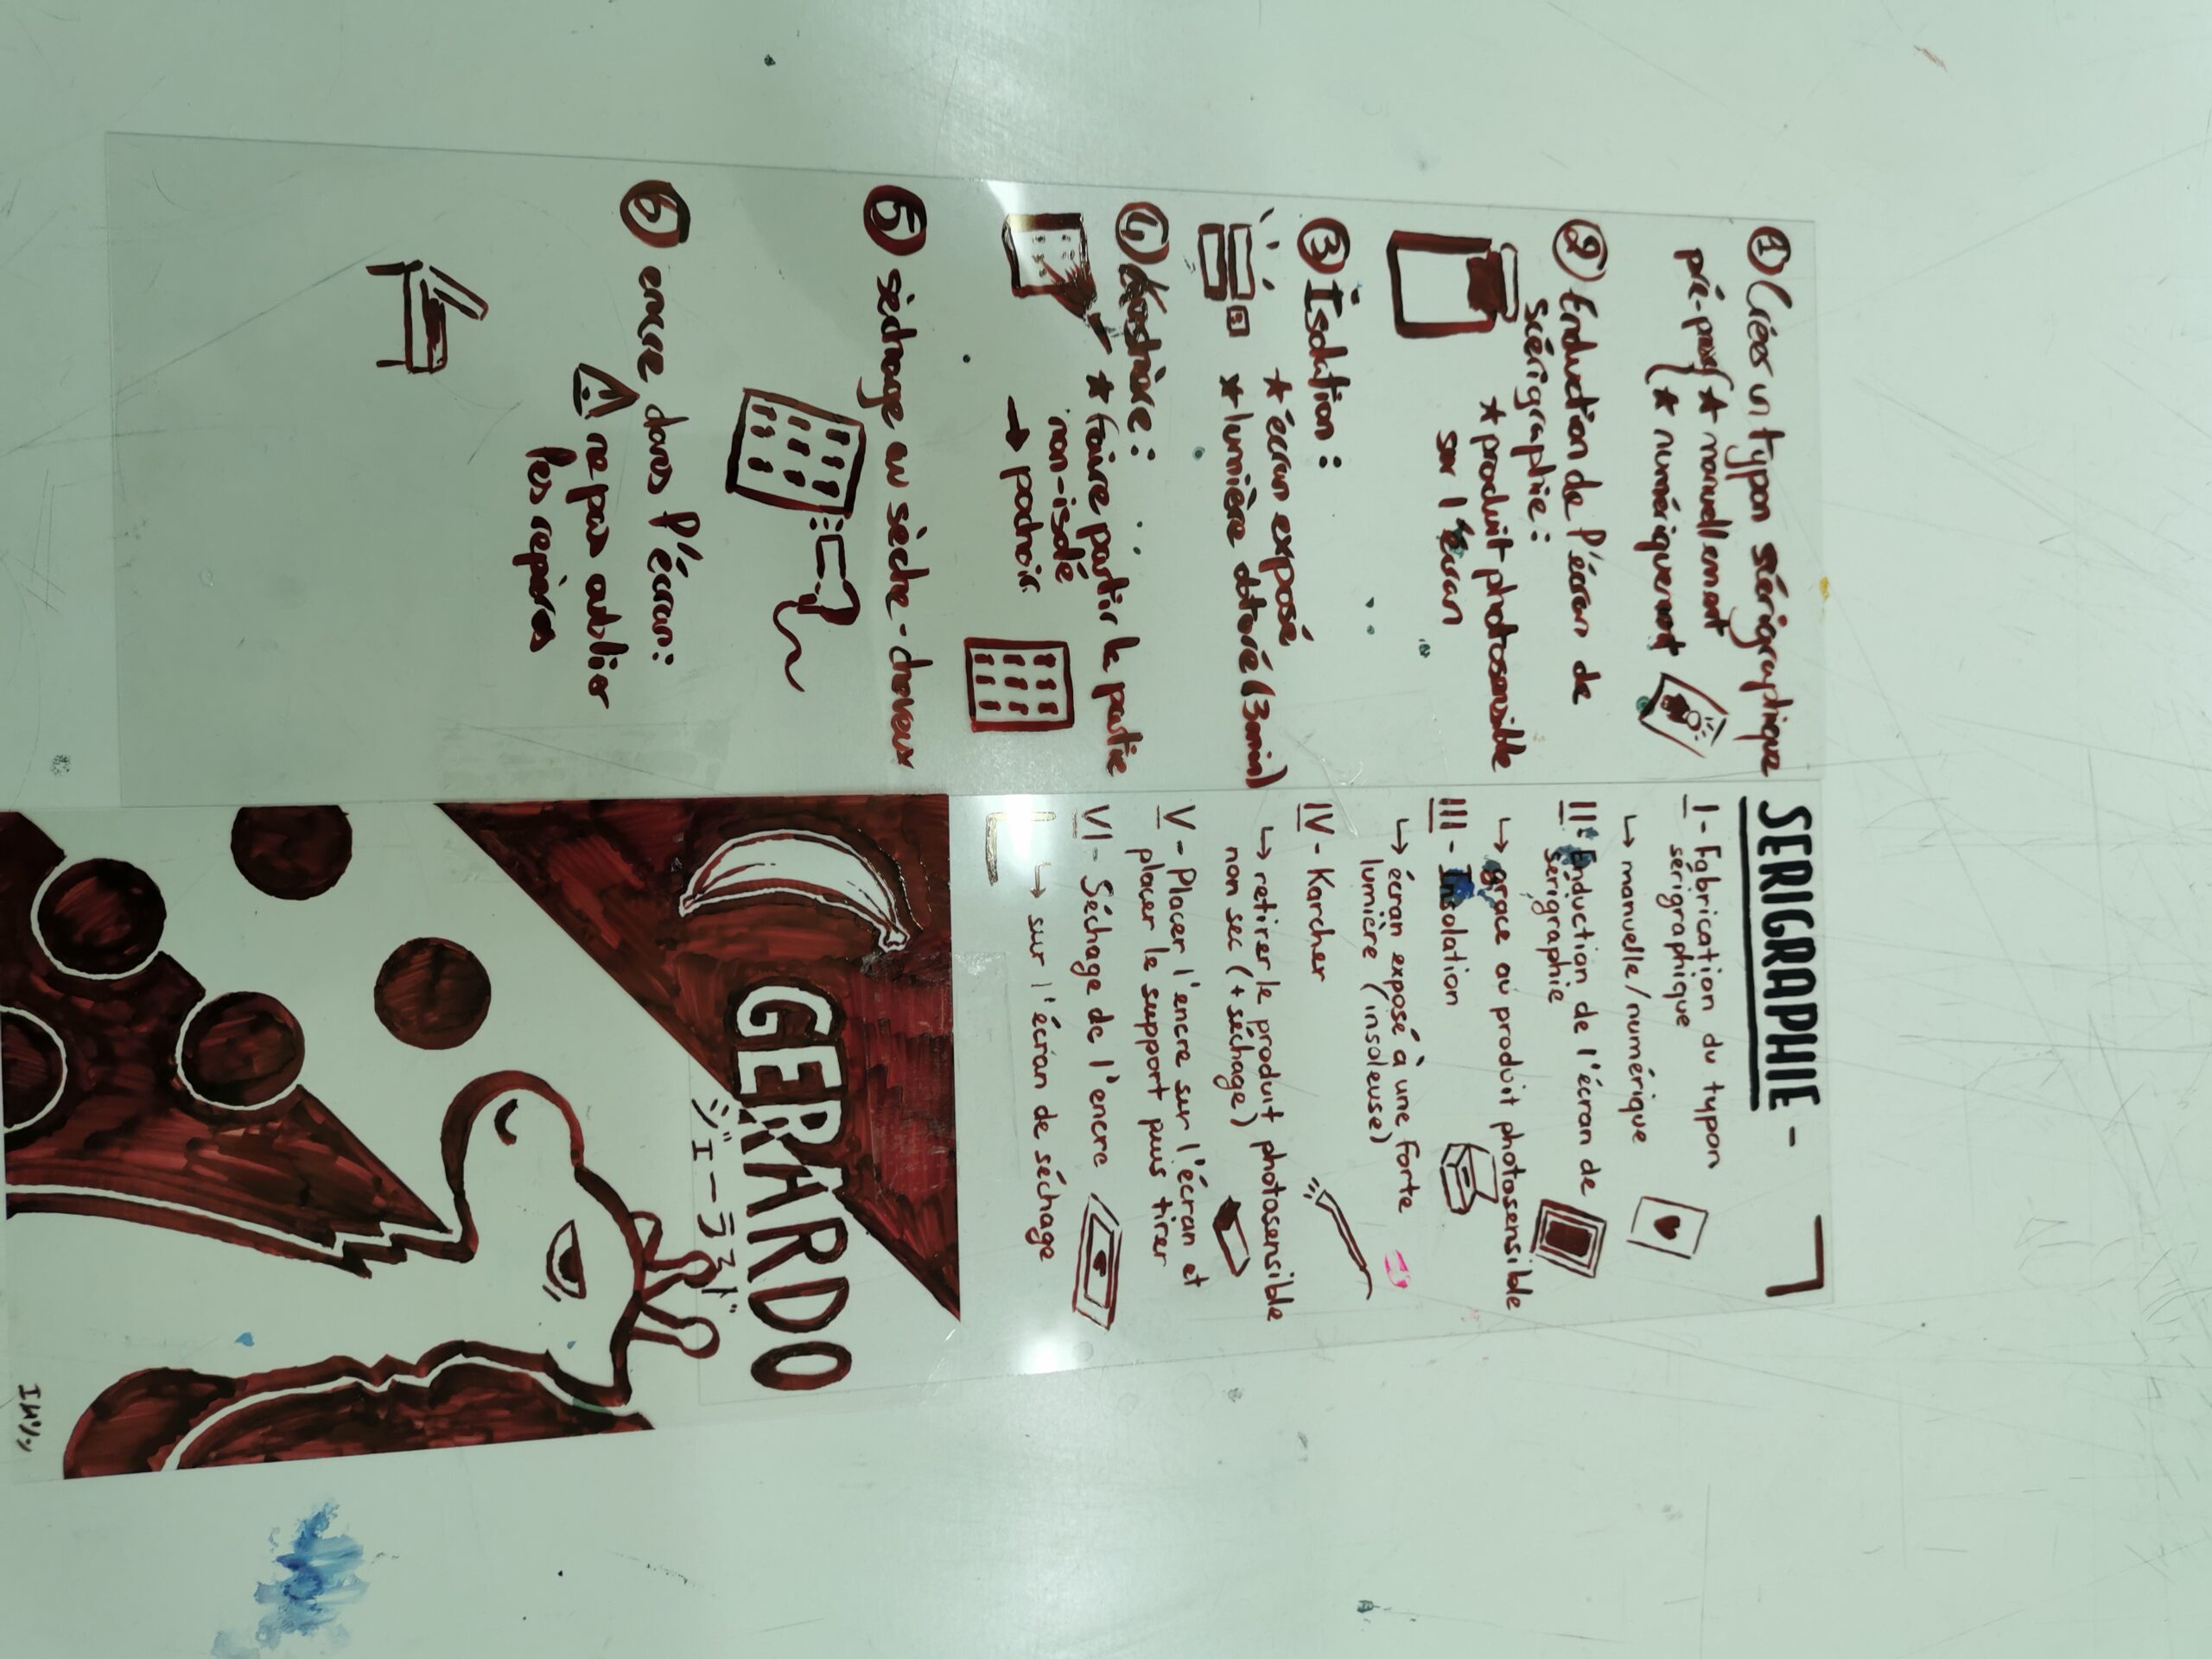 ① Créer un typon sérigraphique
pré-pess { ★ manuellement
★ numériquement
② Enduction de l'écran de
sérigraphie :
★ produit photosensible
sur l'écran
③ Isolation :
★ écran exposé
★ lumière dotoré (3min)
④ Karshère :
★ faire partir la partie
non-isolé
→ pochoir
⑤ sèchage au sèche-cheveux
⑥ encre dans l'écran :
⚠ ne pas oublier
les repères
SERIGRAPHIE -
I - Fabrication du typon
sérigraphique
↳ manuelle/numérique
II - Enduction de l'écran de
sérigraphie
↳ grace au produit photosensible
III - Insolation
↳ écran exposé à une forte
lumière (insoleuse)
IV - Karcher
↳ retirer le produit photosensible
non sec (+ séchage)
V - Placer l'encre sur l'écran et
placer le support puis tirer
VI - Séchage de l'encre
↳ sur l'écran de séchage
GERARDO